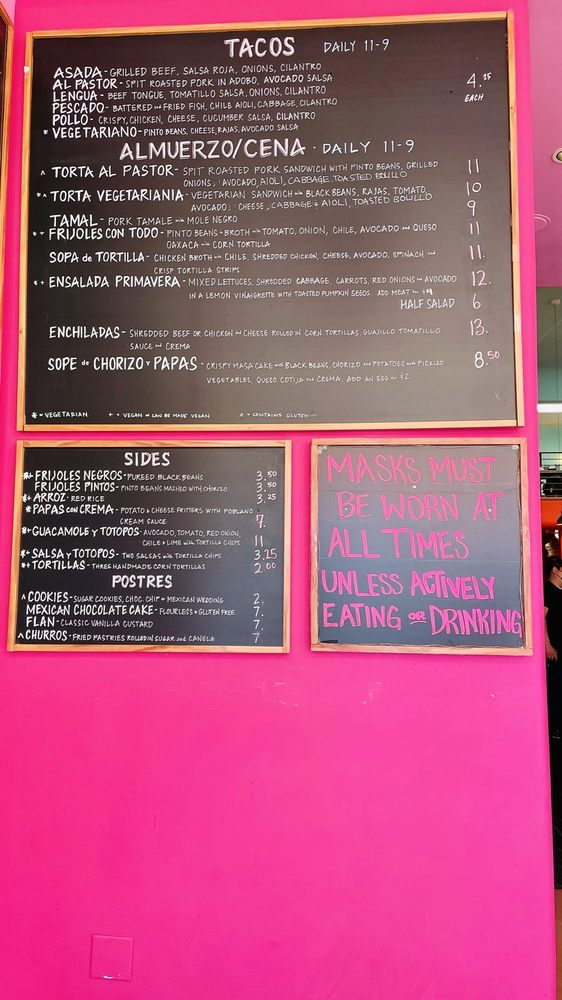 TACOS DAILY 11-9
ASADA - GRILLED BEEF, SALSA ROJA, ONIONS, CILANTRO
AL PASTOR - SPIT ROASTED PORK IN ADOBO, AVOCADO SALSA 4.25
LENGUA - BEEF TONGUE, TOMATILLO SALSA, ONIONS, CILANTRO EACH
PESCADO - BATTERED AND FRIED FISH, CHILE AIOLI, CABBAGE, CILANTRO
POLLO - CRISPY, CHICKEN, CHEESE, CUCUMBER SALSA, CILANTRO
* VEGETARIANO - PINTO BEANS, CHEESE, RAJAS, AVOCADO SALSA
ALMUERZO/CENA · DAILY 11-9
^ TORTA AL PASTOR - SPIT ROASTED PORK SANDWICH WITH PINTO BEANS, GRILLED 11
ONIONS, AVOCADO, AIOLI, CABBAGE TOASTED BOLILLO
*^ TORTA VEGETARIANIA - VEGETARIAN SANDWICH WITH BLACK BEANS, RAJAS, TOMATO, 10
AVOCADO, CHEESE, CABBAGE & AIOLI, TOASTED BOLILLO
TAMAL - PORK TAMALE WITH MOLE NEGRO 9
*+ FRIJOLES CON TODO - PINTO BEANS + BROTH WITH TOMATO, ONION, CHILE, AVOCADO AND QUESO 11
OAXACA WITH CORN TORTILLA
SOPA de TORTILLA - CHICKEN BROTH WITH CHILE, SHREDDED CHICKEN, CHEESE, AVOCADO, SPINACH AND 11.
CRISP TORTILLA STRIPS
*+ ENSALADA PRIMAVERA - MIXED LETTUCES, SHREDDED CABBAGE, CARROTS, RED ONIONS AND AVOCADO 12.
IN A LEMON VINAIGRETTE WITH TOASTED PUMPKIN SEEDS ADD MEAT $4
HALF SALAD 6
ENCHILADAS - SHREDDED BEEF OR CHICKEN AND CHEESE ROLLED IN CORN TORTILLAS, GUAJILLO TOMATILLO 13.
SAUCE AND CREMA
SOPE de CHORIZO Y PAPAS - CRISPY MASA CAKE WITH BLACK BEANS, CHORIZO AND POTATOES WITH PICKLED 8.50
VEGETABLES, QUESO COTIJA AND CREMA, ADD AN EGG $2
* = VEGETARIAN + = VEGAN OR CAN BE MADE VEGAN ^ = CONTAINS GLUTEN
SIDES
*+ FRIJOLES NEGROS - PUREED BLACK BEANS 3.50
FRIJOLES PINTOS - PINTO BEANS MASHED WITH CHORIZO 3.50
*+ ARROZ - RED RICE 3.25
* PAPAS CON CREMA - POTATO & CHEESE FRITTERS WITH POBLANO
CREAM SAUCE 7.
*+ GUACAMOLE Y TOTOPOS - AVOCADO, TOMATO, RED ONION,
CHILE & LIME WITH TORTILLA CHIPS 11
*+ SALSA Y TOTOPOS - TWO SALSAS WITH TORTILLA CHIPS 3.25
*+ TORTILLAS - THREE HANDMADE CORN TORTILLAS 2.00
POSTRES
^ COOKIES - SUGAR COOKIES, CHOC. CHIP OR MEXICAN WEDDING 2.
MEXICAN CHOCOLATE CAKE - FLOURLESS & GLUTEN FREE 7.
FLAN - CLASSIC VANILLA CUSTARD 7.
^ CHURROS - FRIED PASTRIES ROLLED IN SUGAR and CANELA 7
MASKS MUST
BE WORN AT
ALL TIMES
UNLESS ACTIVELY
EATING OR DRINKING